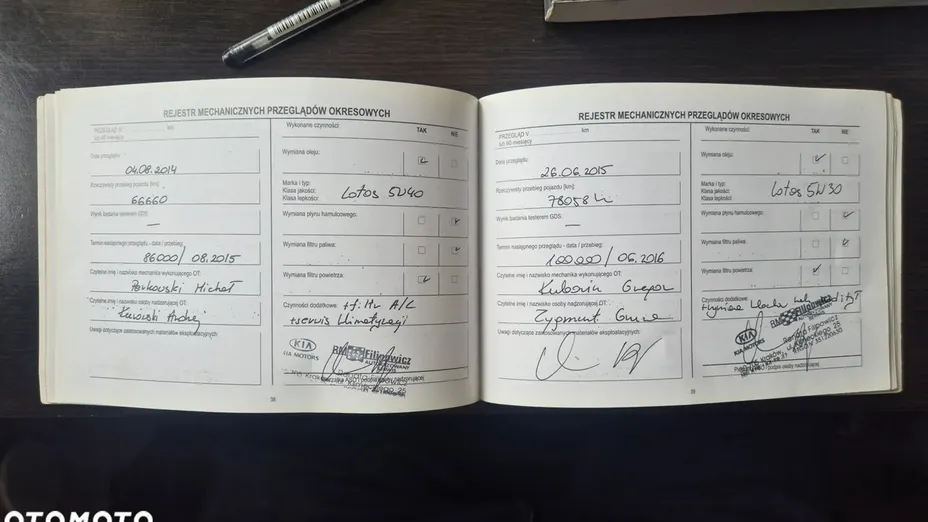 REJESTR MECHANICZNYCH PRZEGLĄDÓW OKRESOWYCH
PRZEGLĄD IV km
lub 48 miesięcy
Data przeglądu:
04.08.2014
Rzeczywisty przebieg pojazdu [km]:
66660
Wynik badania testerem GDS:
—
Termin następnego przeglądu - data / przebieg:
86000/ 08.2015
Czytelne imię i nazwisko mechanika wykonującego OT:
Parkowski Michał
Czytelne imię i nazwisko osoby nadzorującej OT:
Andrej
Uwagi dotyczące zastosowanych materiałów eksploatacyjnych:
Wykonane czynności: TAK NIE
Wymiana oleju:
Marka i typ:
Klasa jakości:
Klasa lepkości:
Lotos 5W40
Wymiana płynu hamulcowego:
Wymiana filtru paliwa:
Wymiana filtru powietrza:
Czynności dodatkowe: + filtr A/C
+serwis klimatyzacji
KIA
KIA MOTORS
RM Filipowicz
AUTORYZOWANY
38
REJESTR MECHANICZNYCH PRZEGLĄDÓW OKRESOWYCH
PRZEGLĄD V km
lub 60 miesięcy
Data przeglądu:
26.06.2015
Rzeczywisty przebieg pojazdu [km]:
78058
Wynik badania testerem GDS:
—
Termin następnego przeglądu - data / przebieg:
100000/ 06.2016
Czytelne imię i nazwisko mechanika wykonującego OT:
Czytelne imię i nazwisko osoby nadzorującej OT:
Zygmunt
Uwagi dotyczące zastosowanych materiałów eksploatacyjnych:
Wykonane czynności: TAK NIE
Wymiana oleju:
Marka i typ:
Klasa jakości:
Klasa lepkości:
Lotos 5W30
Wymiana płynu hamulcowego:
Wymiana filtru paliwa:
Wymiana filtru powietrza:
Czynności dodatkowe:
KIA
KIA MOTORS
Filipowicz
39
OTOMOTO